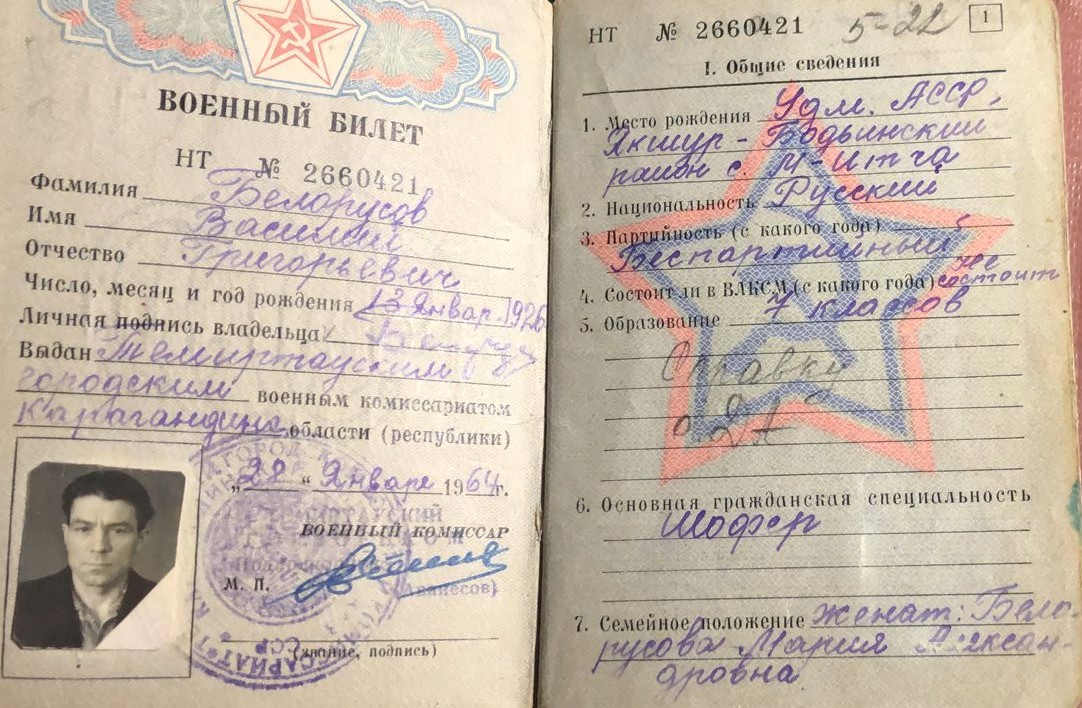 ВОЕННЫЙ БИЛЕТ
НТ № 2660421
Фамилия Белорусов
Имя Василий
Отчество Григорьевич
Число, месяц и год рождения 13 Январ 1926
Личная подпись владельца
Выдан Темиртауским
городским военным комиссариатом
Карагандинс области (республики)
„28“ Января 1964г.
ВОЕННЫЙ КОМИССАР
М. П. (Аванесов)
(звание, подпись)
НТ № 2660421 5-22 1
I. Общие сведения
1. Место рождения Удм. АССР,
Якшур-Бодьинский
район с. М-Итча
2. Национальность Русский
3. Партийность (с какого года)
Беспартийный
4. Состоит ли в ВЛКСМ (с какого года) не состоит
5. Образование 7 классов
6. Основная гражданская специальность
Шофер
7. Семейное положение женат: Бело-
русова Мария Алексан-
дровна